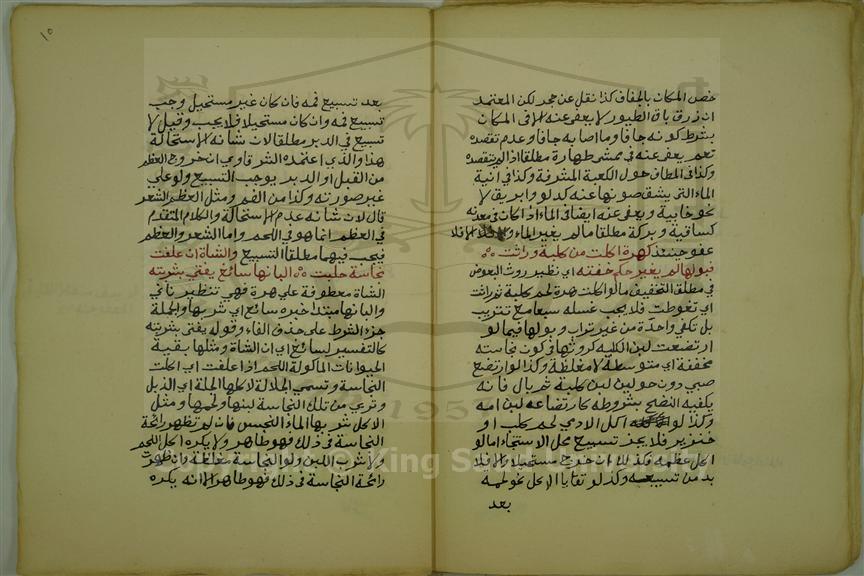 خص المكان بالجفاف كذا نقل عن حجر لكن المعتمد
ان زرق باقى الطيور لا يعفى عنه الا في المكان
بشرط كونه جافا وما اصابه جافا وعدم تقصده
نعم يعفى عنه في ممشى طهارة مطلقا اذا لم يتقصده
وكذا في المطاف حول الكعبة المشرفة وكذا في انية
الماء التى يشق صونها عنه كدلو وابريق لا
نحو خابية ويعفى عنه ايضا في الماء اذا كان في معدنه
كساقية وبركة مطلقا ما لم يغير الماء والا فلا
عفو حينئذ كهرة اكلت من كلبة وراثت
فبولها لم يغير حكم خفته اى نظير روث البعوض
في مطلق التخفيف ما لو اكلت هرة لحم كلبة ثم راثت
اى تغوطت فلا يجب غسله سبعا مع تتريب
بل تكفي واحدة من غير تراب وبولها فيما لو
ارتضعت لبن الكلبه كروثها في كون نجاسته
مخففة اى متوسطة لا مغلظة وكذا لو ارتضع
صبي دون حولين لبن كلبة ثم بال فانه
يكفيه النضح بشروطه كارتضاعه لبن امه
وكذا لو اكل الادمي لحم كلب او
خنزير فلا يجب تسبيع محل الاستنجاء اما لو
اكل عظمه فكذلك ان خرج مستحيلا والا فلا
بد من تسبيعه وكذا لو تقايا الاكل نحو لحمه
بعد
١٠
بعد تسبيع فمه فان كان غير مستحيل وجب
تسبيع فمه وان كان مستحيلا فلا يجب وقيل لا
تسبيع في الدبر مطلقا لان شانه الاستحالة
هذا والذي اعتمده الشرقاوي ان خروج العظم
من القبل او الدبر يوجب التسبيع ولو علي
غير صورته وكذا من الفم ومثل العظم الشعر
قال لان شانه عدم الاستحالة والكلام المتقدم
في العظم انما هو في اللحم واما الشعر والعظم
فيجب فيهما مطلقا التسبيع والشاة ان علفت
نجاسة حلبت البانها سائغ يفتي بشربته
الشاة معطوفة علي هرة فهي تنظير ثاني
والبانها مبتدا خبره سائغ اى شربها والجملة
جزء الشرط على حذف الفاء وقوله يفتى بشربته
كالتفسير لسائغ اى ان الشاة ومثلها بقية
الحيوانات الماكولة اللحم اذا علفت اى اكلت
النجاسة وتسمي الجلالة لاكلها الجلة اى الذبل
وتربي من تلك النجاسة لبنها ولحمها ومثل
الاكل شربها الماء النجس فان لم تظهر رائحة
النجاسة في ذلك فهو طاهر ولا يكره اكل اللحم
ولا شرب اللبن ولو النجاسة مغلظة وان ظهرت
رائحة النجاسة في ذلك فهو طاهر الا انه يكره
Copyright © King Saud University
1957